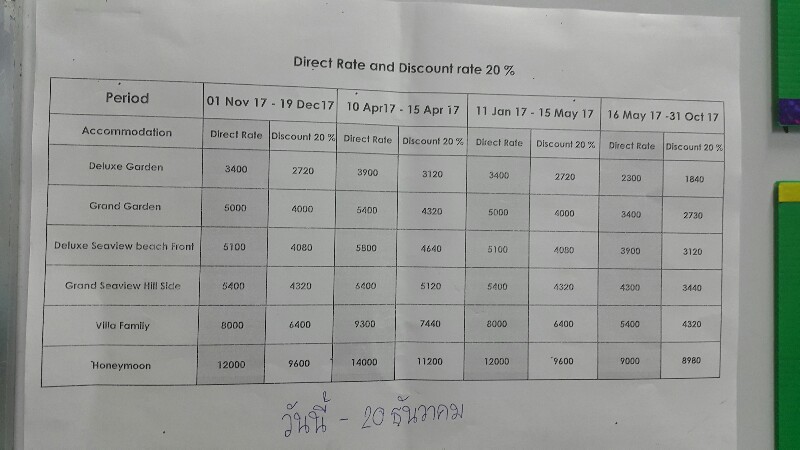 Direct Rate and Discount rate 20 %
Period 01 Nov 17 - 19 Dec17 10 Apr17 - 15 Apr 17 11 Jan 17 - 15 May 17 16 May 17 -31 Oct 17
Accommodation Direct Rate Discount 20 % Direct Rate Discount 20 % Direct Rate Discount 20 % Direct Rate Discount 20 %
Deluxe Garden 3400 2720 3900 3120 3400 2720 2300 1840
Grand Garden 5000 4000 5400 4320 5000 4000 3400 2730
Deluxe Seaview beach Front 5100 4080 5800 4640 5100 4080 3900 3120
Grand Seaview Hill Side 5400 4320 6400 5120 5400 4320 4300 3440
Villa Family 8000 6400 9300 7440 8000 6400 5400 4320
Honeymoon 12000 9600 14000 11200 12000 9600 9000 8980
วันนี้ - 20 ธันวาคม